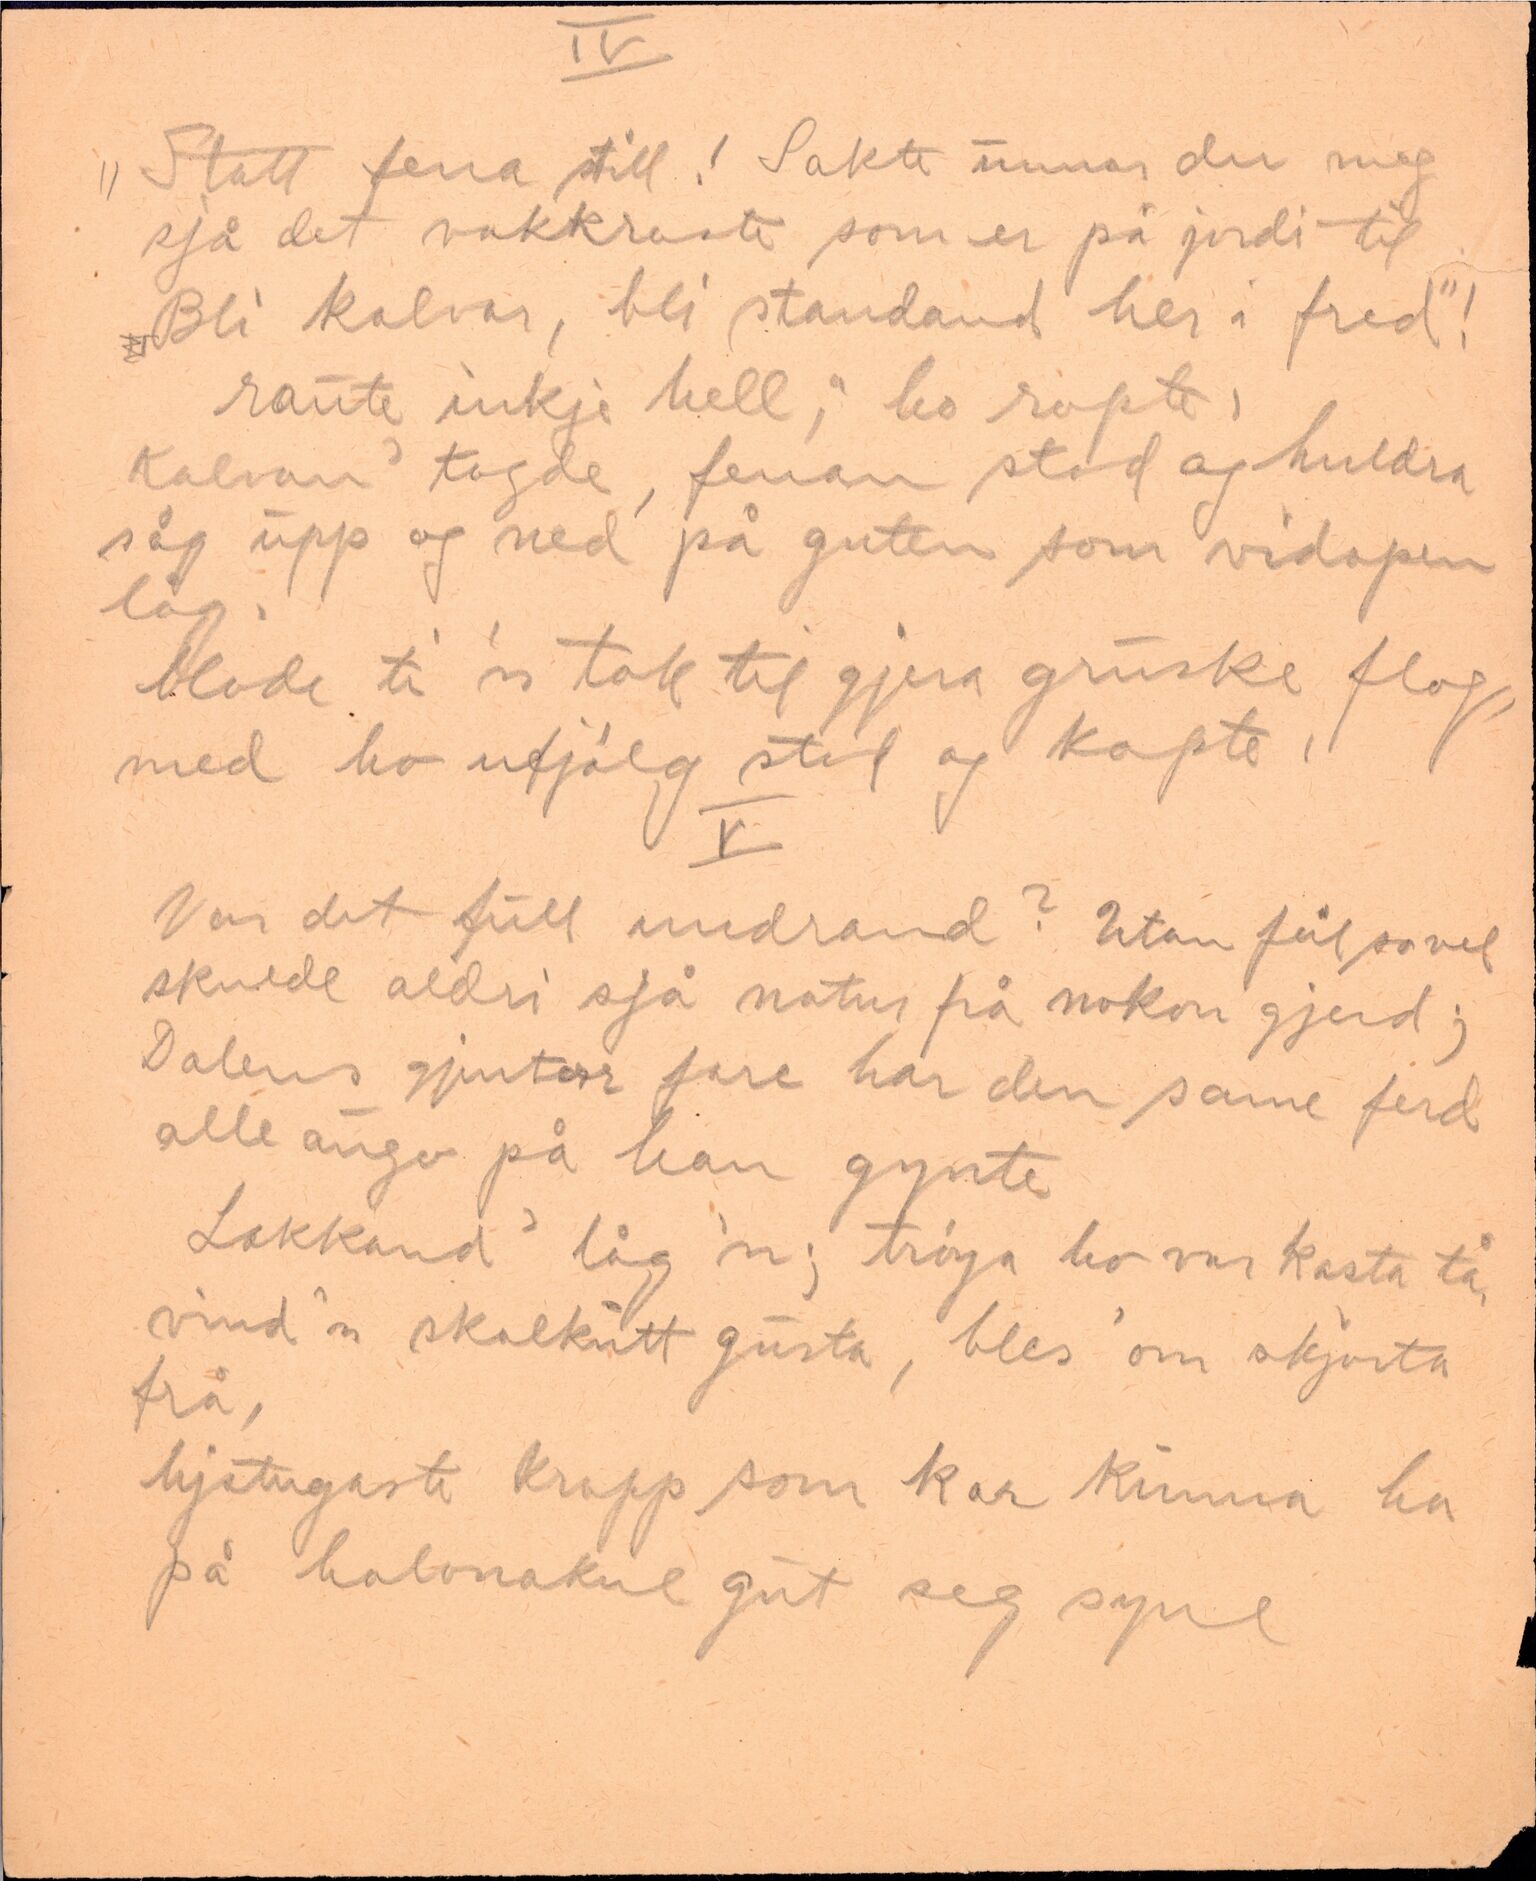 IV
"Statt fena still! Sakte unnar du meg
sjå det vakkraste som er på jordi til
Bli kalvar, bli standand her i fred"!
raute inkje hell," ho ropte,
Kalvan' tagde, fenan stod og huldra
såg upp og ned på guten som vidopen
låg.
blode ti 'n tok til gjera gruske flog,
med ho ufjølg stod og kopte,
V
Var det full undrand? Utan fúl so vel
skulde aldri sjå natur på nokon gjerd;
Dalens gjenter fare har den same ferd
alle augo på han gynte
Lakkand' låg 'n; trøya ho var kasta tå,
vind'n skalkutt gusta, bles 'om skjorta
frå,
hjøtugaste kropp som kar kunna ha
på halvnakne gut seg syne